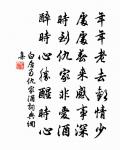 年年老去歡情少
處處春來感事深
時到仇家非愛酒
醉時心勝醒時心
白居易仇家酒詞典網
集